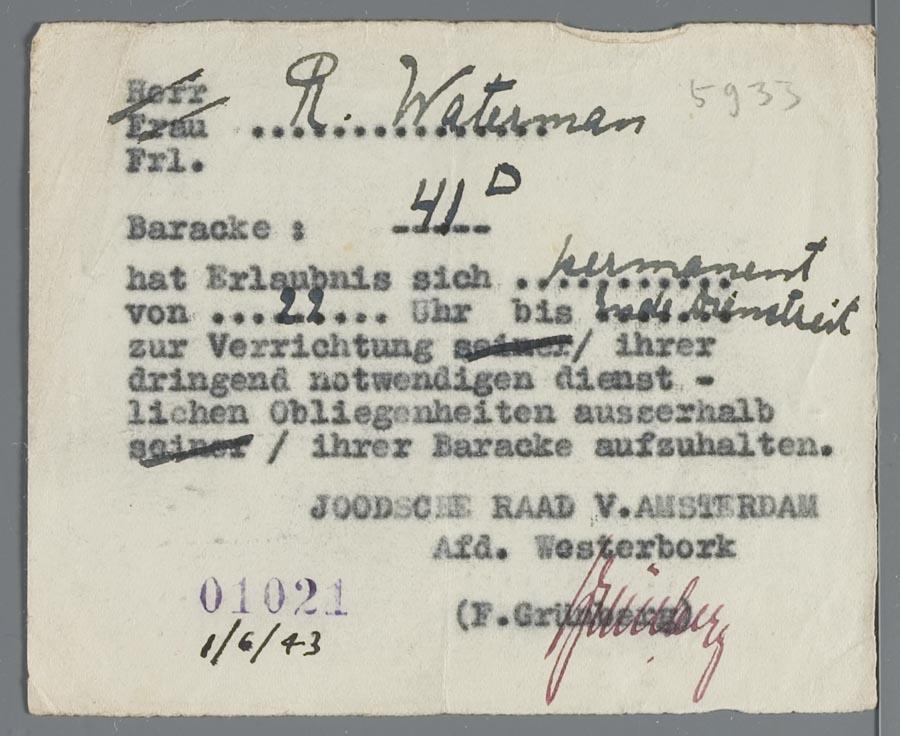 Herr R. Waterman 5933
Frau ................
Frl.
Baracke : 41 D
hat Erlaubnis sich .. permanent
von .... 22 .... Uhr bis Ende Dienstzeit
zur Verrichtung seiner/ ihrer
dringend notwendigen dienst -
lichen Obliegenheiten ausserhalb
seiner / ihrer Baracke aufzuhalten.
JOODSCHE RAAD V.AMSTERDAM
Afd. Westerbork
01021
(F.Grünberg) Grünberg
1/6/43